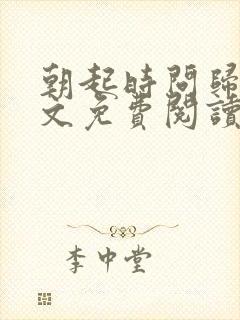 朝起時間歸
文免費閱讀
李中堂